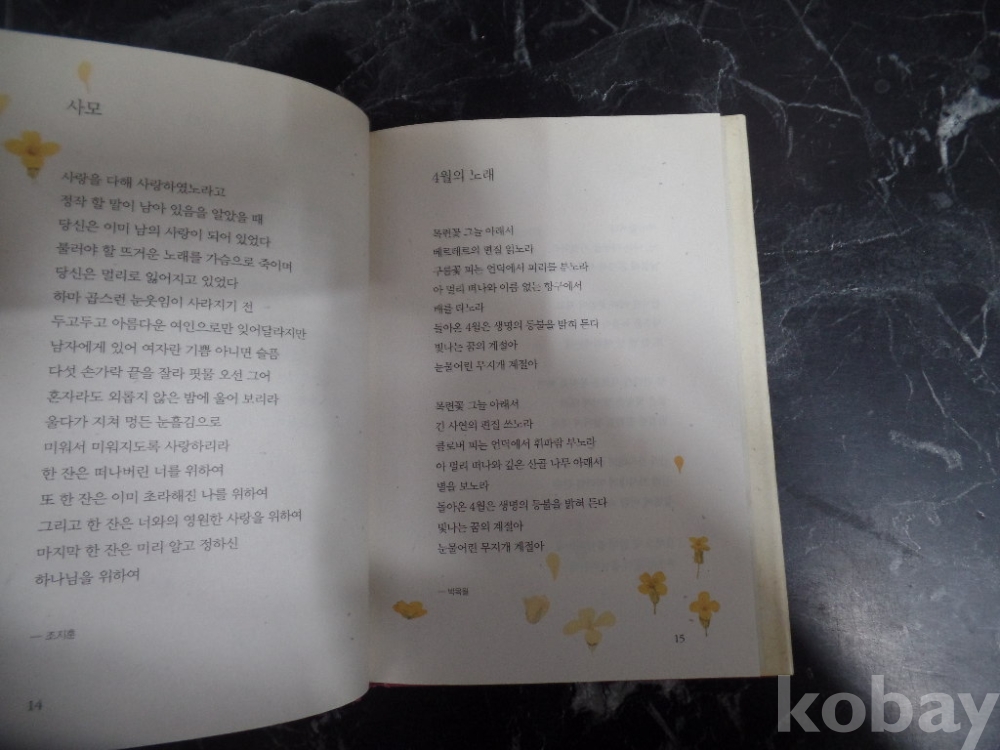 사모
사랑을 다해 사랑하였노라고
정작 할 말이 남아 있음을 알았을 때
당신은 이미 남의 사랑이 되어 있었다
불러야 할 뜨거운 노래를 가슴으로 죽이며
당신은 멀리로 잃어지고 있었다
하마 곱스런 눈웃임이 사라지기 전
두고두고 아름다운 여인으로만 잊어달라지만
남자에게 있어 여자란 기쁨 아니면 슬픔
다섯 손가락 끝을 잘라 핏물 오선 그어
혼자라도 외롭지 않은 밤에 울어 보리라
울다가 지쳐 멍든 눈흘김으로
미워서 미워지도록 사랑하리라
한 잔은 떠나버린 너를 위하여
또 한 잔은 이미 초라해진 나를 위하여
그리고 한 잔은 너와의 영원한 사랑을 위하여
마지막 한 잔은 미리 알고 정하신
하나님을 위하여
— 조지훈
14
4월의 노래
목련꽃 그늘 아래서
베르테르의 편질 읽노라
구름꽃 피는 언덕에서 피리를 부노라
아 멀리 떠나와 이름 없는 항구에서
배를 타노라
돌아온 4월은 생명의 등불을 밝혀 든다
빛나는 꿈의 계절아
눈물어린 무지개 계절아
목련꽃 그늘 아래서
긴 사연의 편질 쓰노라
클로버 피는 언덕에서 휘파람 부노라
아 멀리 떠나와 깊은 산골 나무 아래서
별을 보노라
돌아온 4월은 생명의 등불을 밝혀 든다
빛나는 꿈의 계절아
눈물어린 무지개 계절아
— 박목월
15
kobay